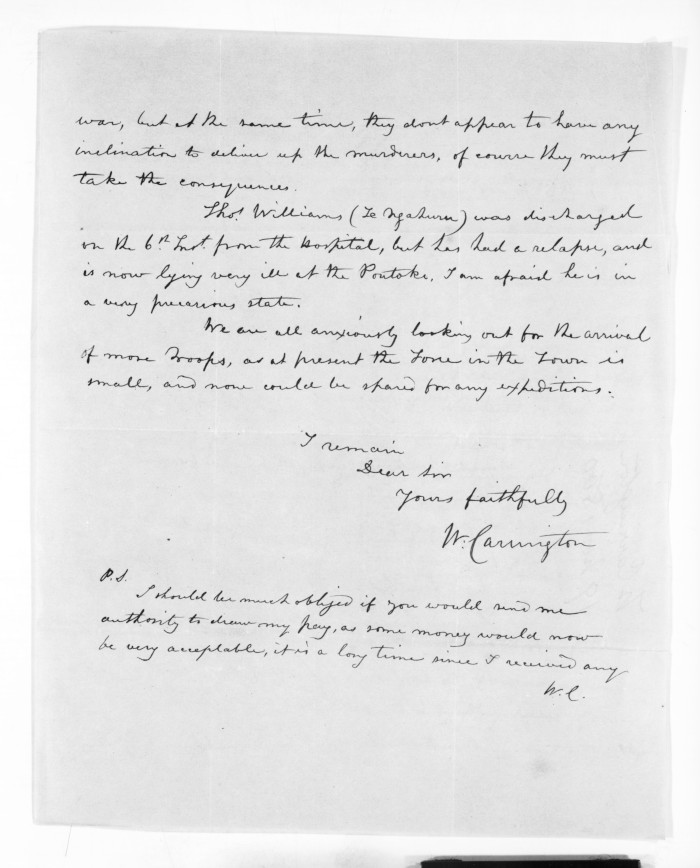 war, but at the same time, they dont appear to have any
inclination to deliver up the murderers, of course they must
take the consequences.
Thos. Williams (Te Ngahuru) was discharged
on the 6th Inst. from the Hospital, but has had a relapse, and
is now lying very ill at the Poutoko. I am afraid he is in
a very precarious state.
We are all anxiously looking out for the arrival
of more Troops, as at present the Force in the Town is
small, and none could be spared for any expeditions.
I remain
Dear Sir
Yours faithfully
W. Carrington
P.S.
I should be much obliged if you would send me
authority to draw my pay, as some money would now
be very acceptable, it is a long time since I received any
W.C.